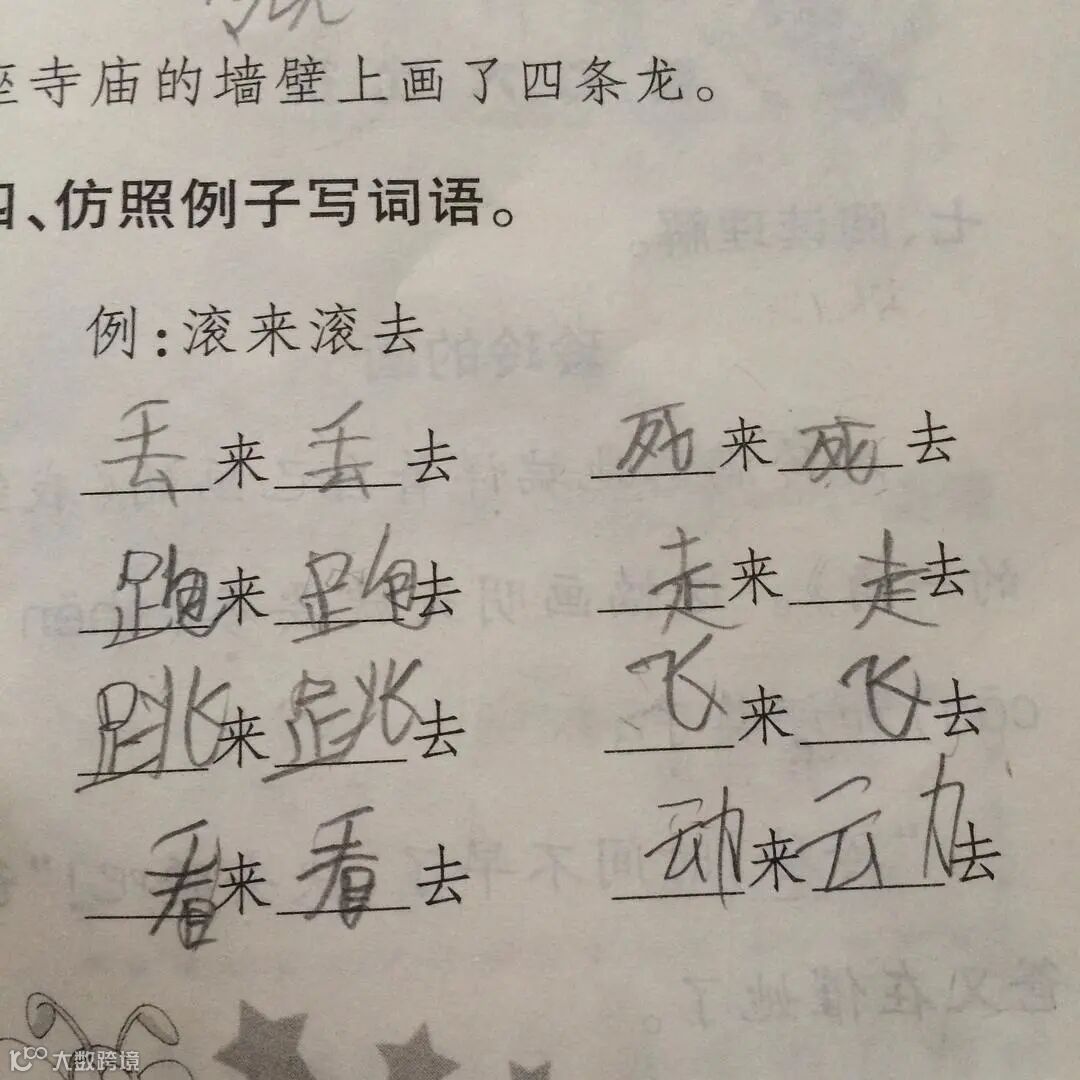 座寺庙的墙壁上画了四条龙。
四、仿照例子写词语。
例:滚来滚去
丢来丢去 死来死去
跑来跑去 走来走去
跳来跳去 飞来飞去
看来看去 动来动去
大数跨境